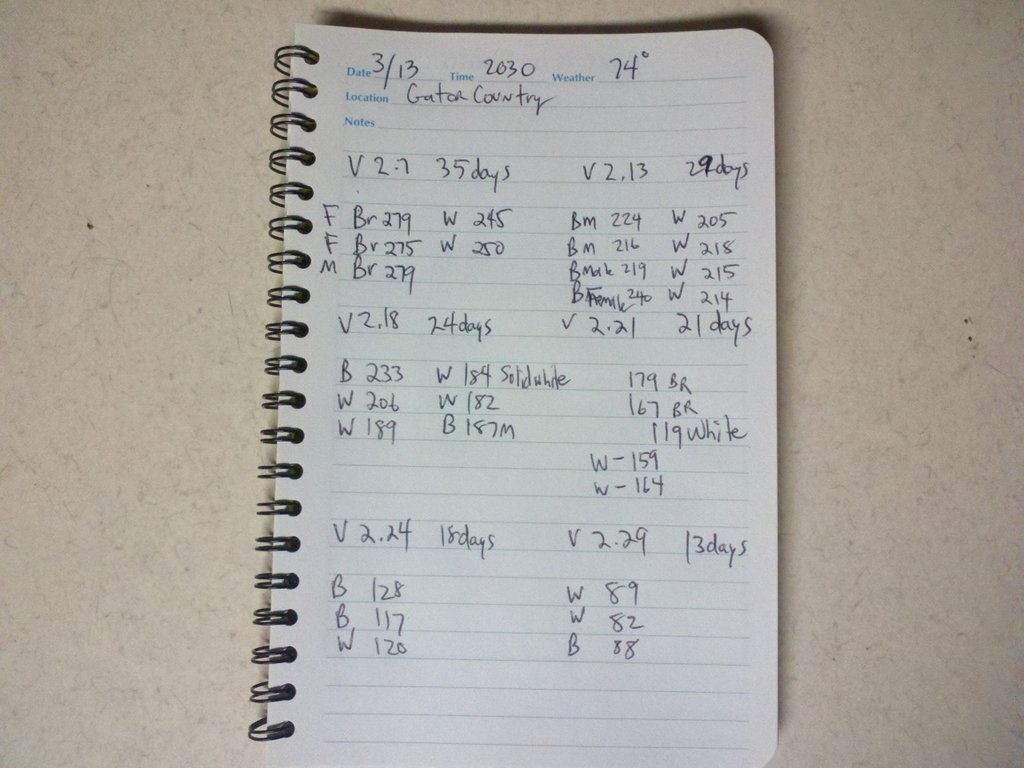 Date 3/13 Time 2030 Weather 74°
Location Gator Country
Notes
V 2.7 35days
F Br 279 W 245
F Br 275 W 250
M Br 279
V 2.13 29days
Bm 224 W 205
Bm 216 W 218
Bmale 219 W 215
BFemale 240 W 214
V 2.18 24days
B 233 W 184 Solidwhite
W 206 W 182
W 189 B 187M
V 2.21 21days
179 BR
167 BR
119 White
W-159
W-164
V 2.24 18days
B 128
B 117
W 120
V 2.29 13days
W 89
W 82
B 88